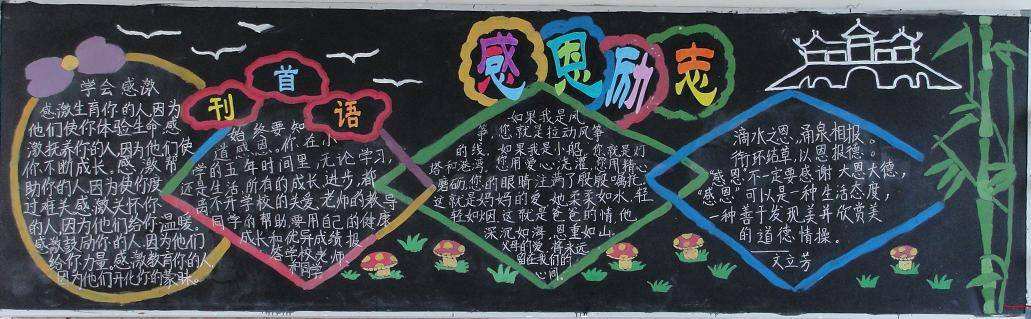 感恩励志
学会感激
感激生育你的人,因为
他们使你体验生命.感
激抚养你的人,因为他们使
你不断成长.感激帮
助你的人,因为使你度
过难关.感激关怀你
的人,因为他们给你温暖.
感激鼓励你的人,因为他们
给你力量.感激教育你的人,
因为他们开化你的蒙昧.
刊首语
始终要知
道感恩。你在小
学的五年时间里,无论学习,
还是生活,所有的成长,进步,都
离不开学校的关爱,老师的教导
同学的帮助.要用自己的健康
成长和优异成绩报
答学校,老师
和同学
如果我是风
筝,您就是拉动风筝
的线.如果我是小船,您就是灯
塔和港湾.您用爱心浇灌,您用精心
磨砺.您的眼睛注满了殷殷嘱托.
这就是妈妈的爱,她柔柔如水,轻
轻如烟.这就是爸爸的情,他
深沉如海,恩重如山.
父母的爱,将永远
留在我们的
心间.
滴水之恩,涌泉相报。
衔环结草,以恩报德。
“感恩”不一定要感谢大恩大德,
“感恩”可以是一种生活态度,
一种善于发现美并欣赏美
的道德情操。
——文立芳